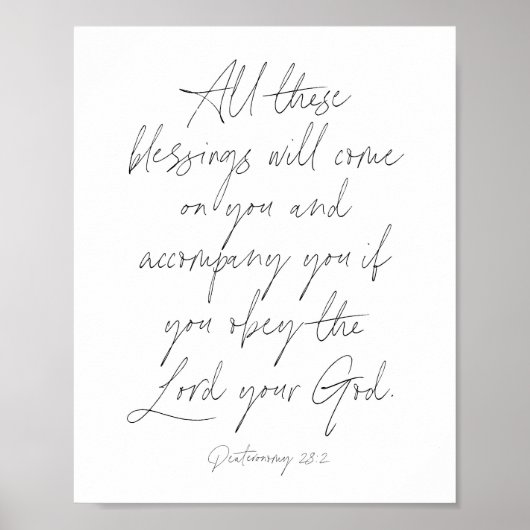 All these
blessings will come
on you and
accompany you if
you obey the
Lord your God.
Deuteronomy 28:2